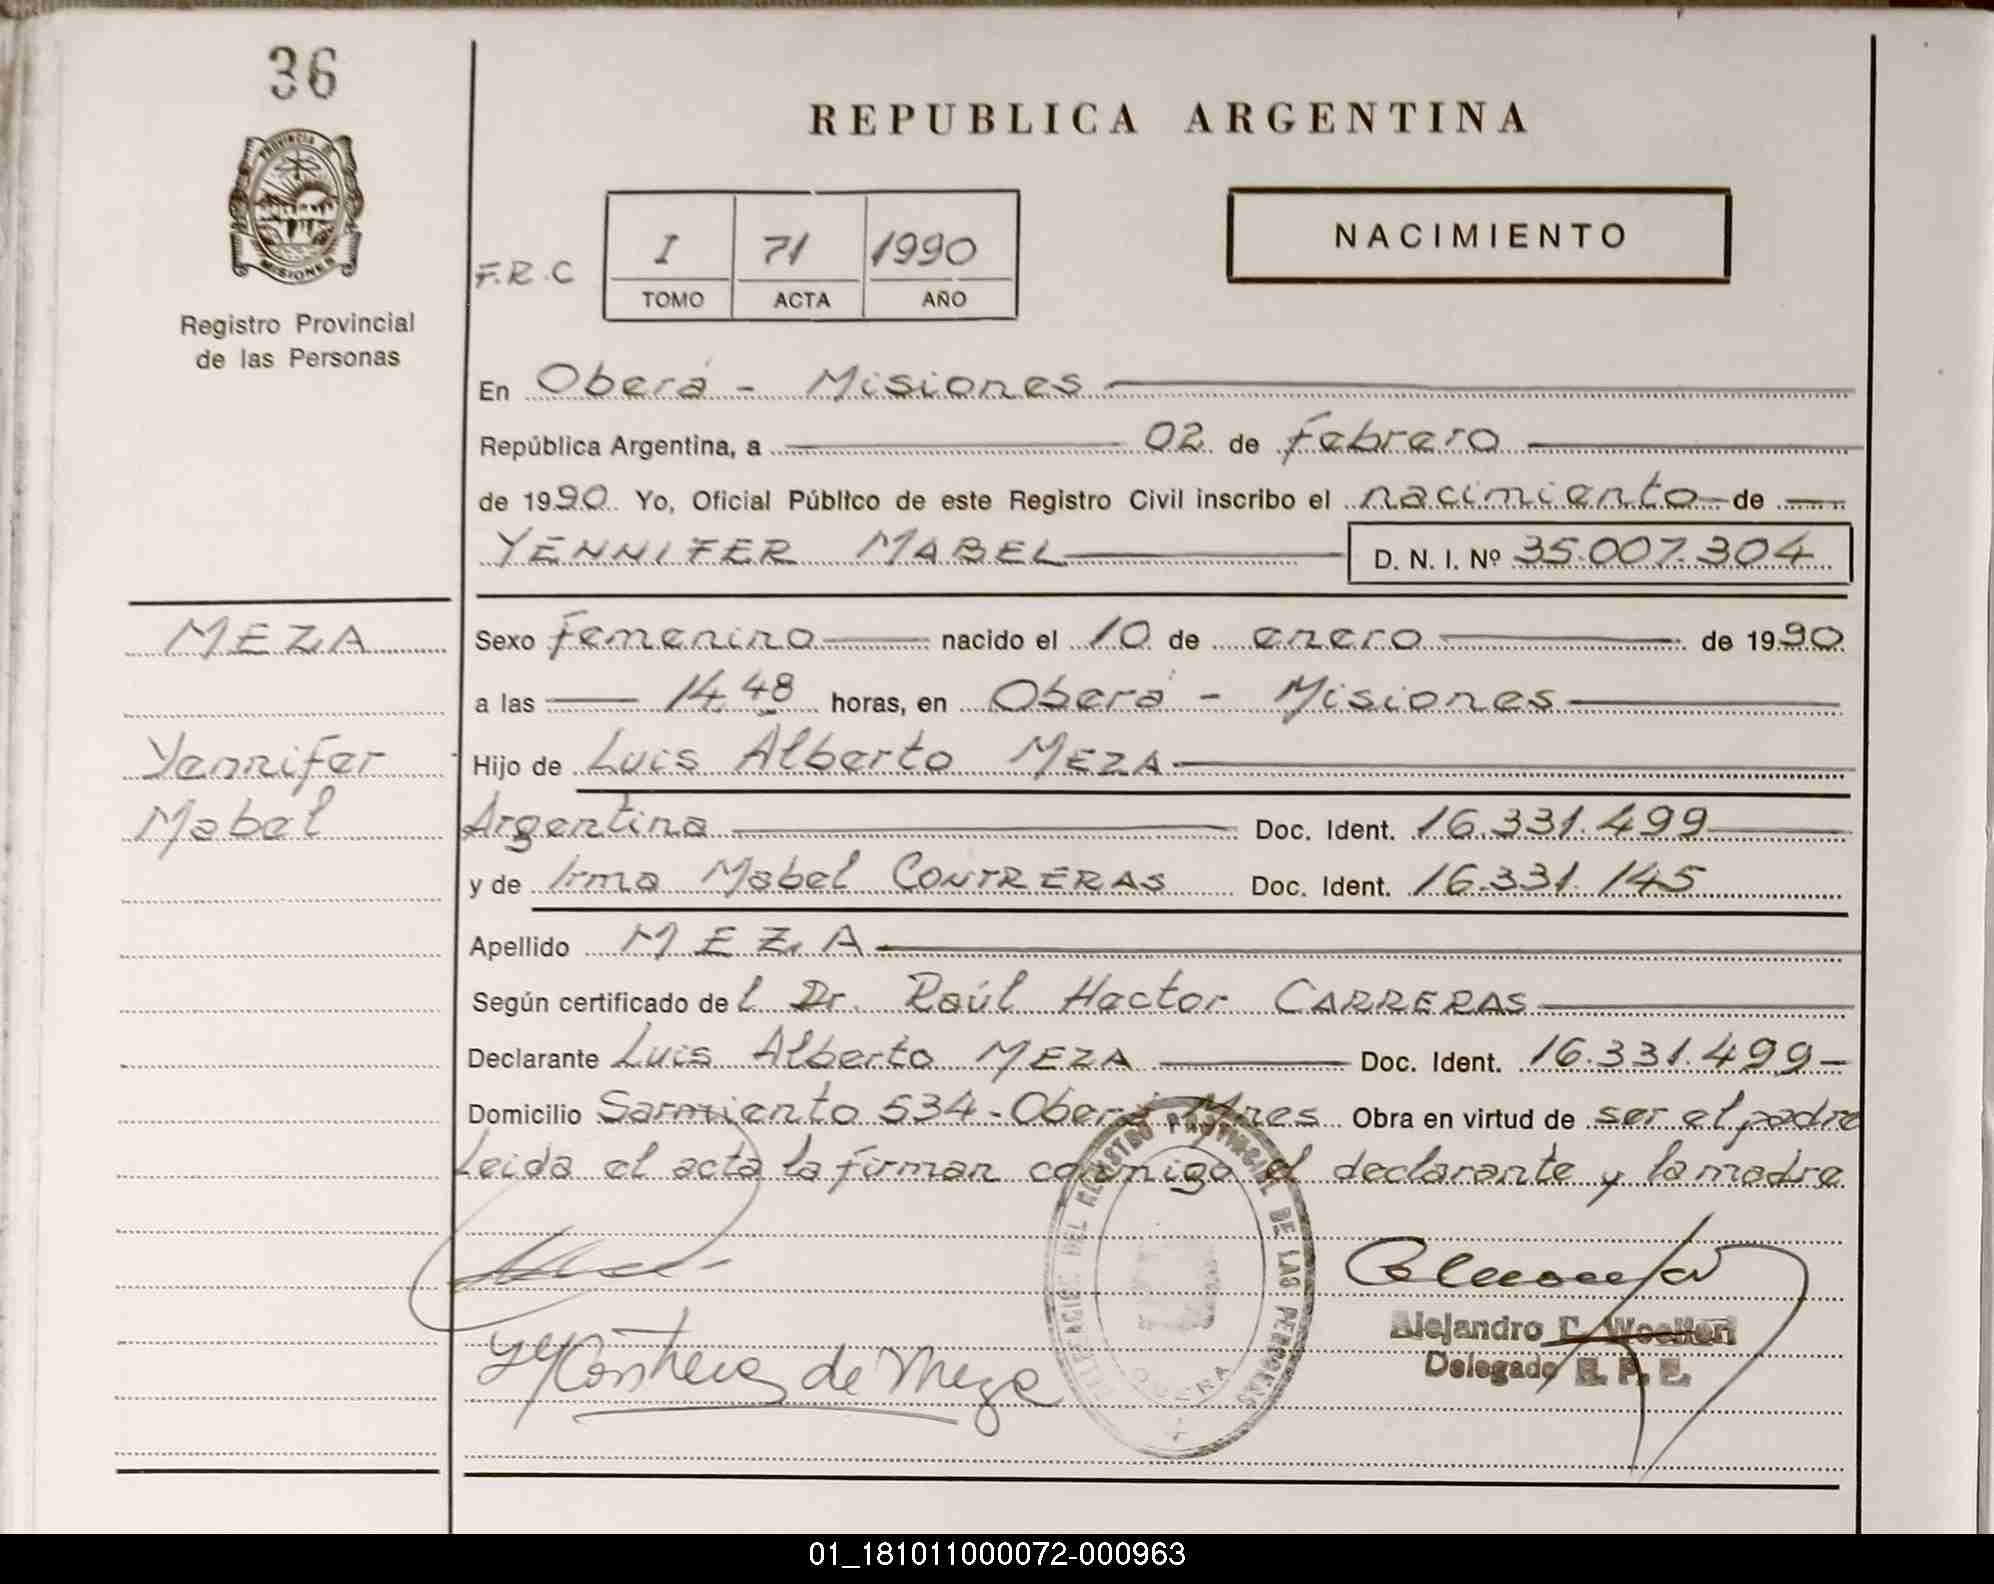 36
REPUBLICA ARGENTINA
PROVINCIA DE
MISIONES
Registro Provincial
de las Personas
F.R.C
I 71 1990
TOMO ACTA AÑO
NACIMIENTO
En Oberá - Misiones
República Argentina, a 02 de Febrero
de 1990. Yo, Oficial Público de este Registro Civil inscribo el nacimiento de
YENNIFER MABEL D. N. I. Nº 35.007.304
MEZA
Yennifer
Mabel
Sexo Femenino nacido el 10 de enero de 1990
a las 14,48 horas, en Oberá - Misiones
Hijo de Luis Alberto MEZA
Argentina Doc. Ident. 16.331.499
y de Irma Mabel CONTRERAS Doc. Ident. 16.331.145
Apellido MEZA
Según certificado del Dr. Raúl Hector CARRERAS
Declarante Luis Alberto MEZA Doc. Ident. 16.331.499
Domicilio Sarmiento 534 - Oberá Mnes Obra en virtud de ser el padre
Leida el acta la firman conmigo el declarante y la madre
DELEGACION DEL REGISTRO PROVINCIAL DE LAS PERSONAS
OBERA
Contreras de Meza
Alejandro
Delegado
01_181011000072-000963